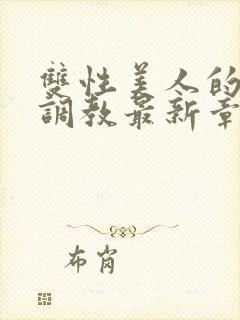 雙性美人的
調教最新章
布肖